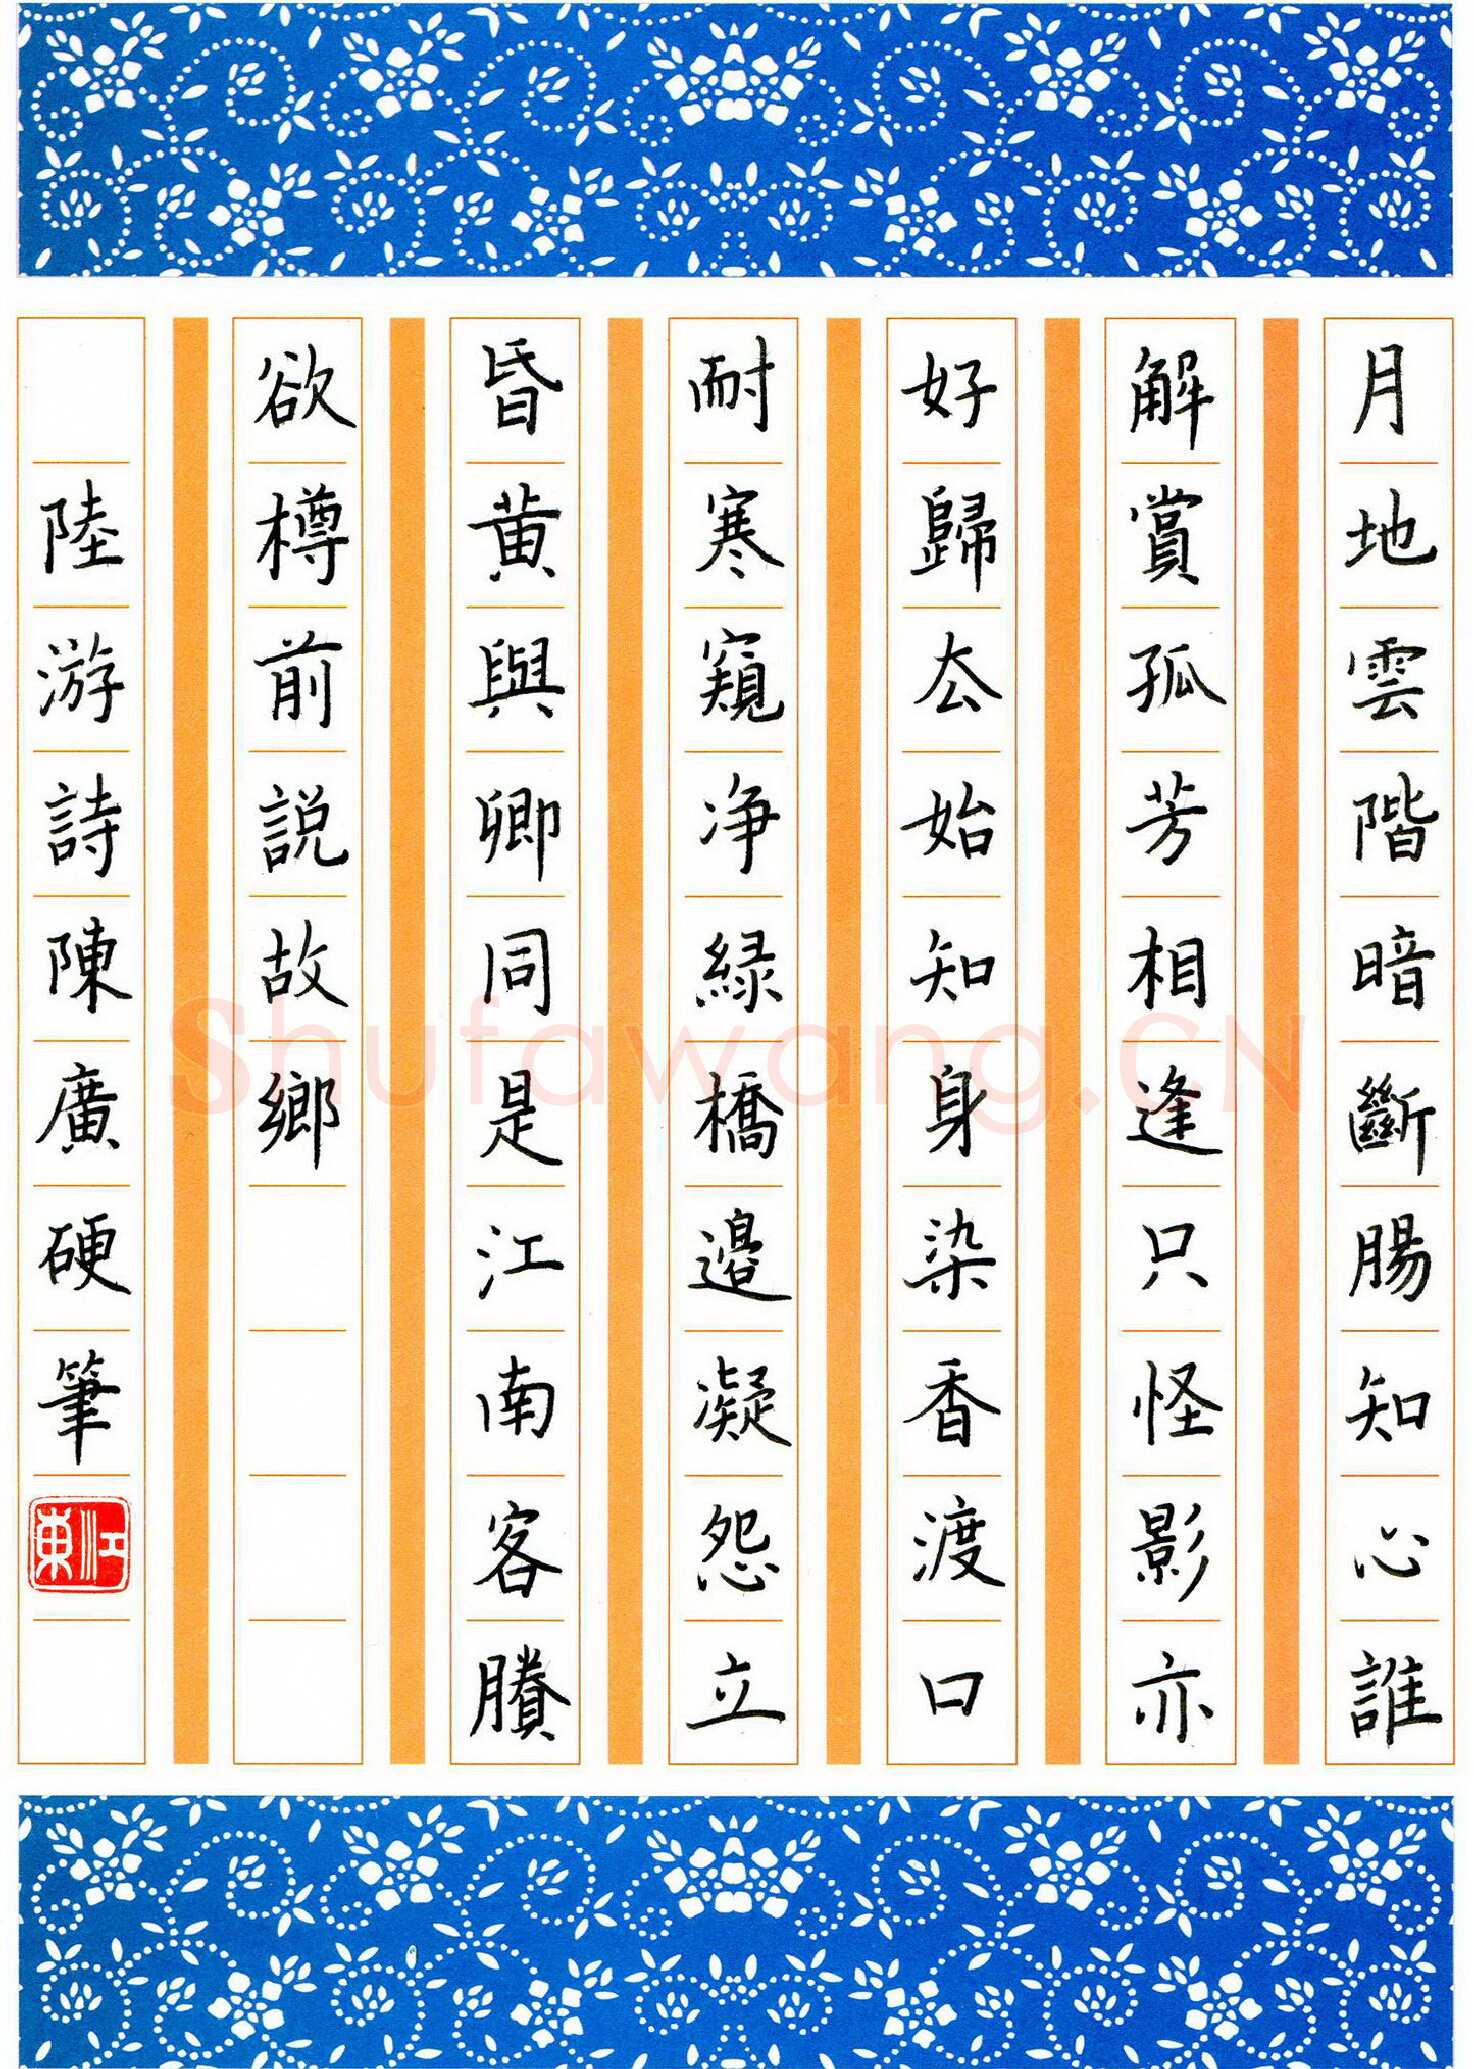 月地雲階暗斷腸知心誰
解賞孤芳相逢只怪影亦
好歸去始知身染香渡口
耐寒窺净緑橋邊凝怨立
昏黄與卿同是江南客賸
欲樽前説故鄉
陸游詩陳廣硬筆
江東
Shufawang.CN